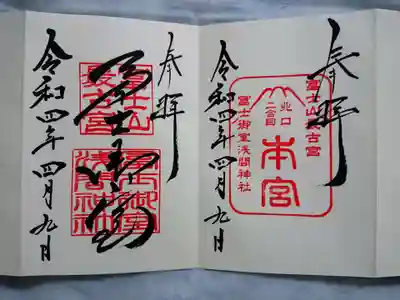 奉拝
冨士山最古宮
北口
二合目
本宮
冨士御室浅間神社
令和四年四月九日
奉拝
冨士御室
令和四年四月九日